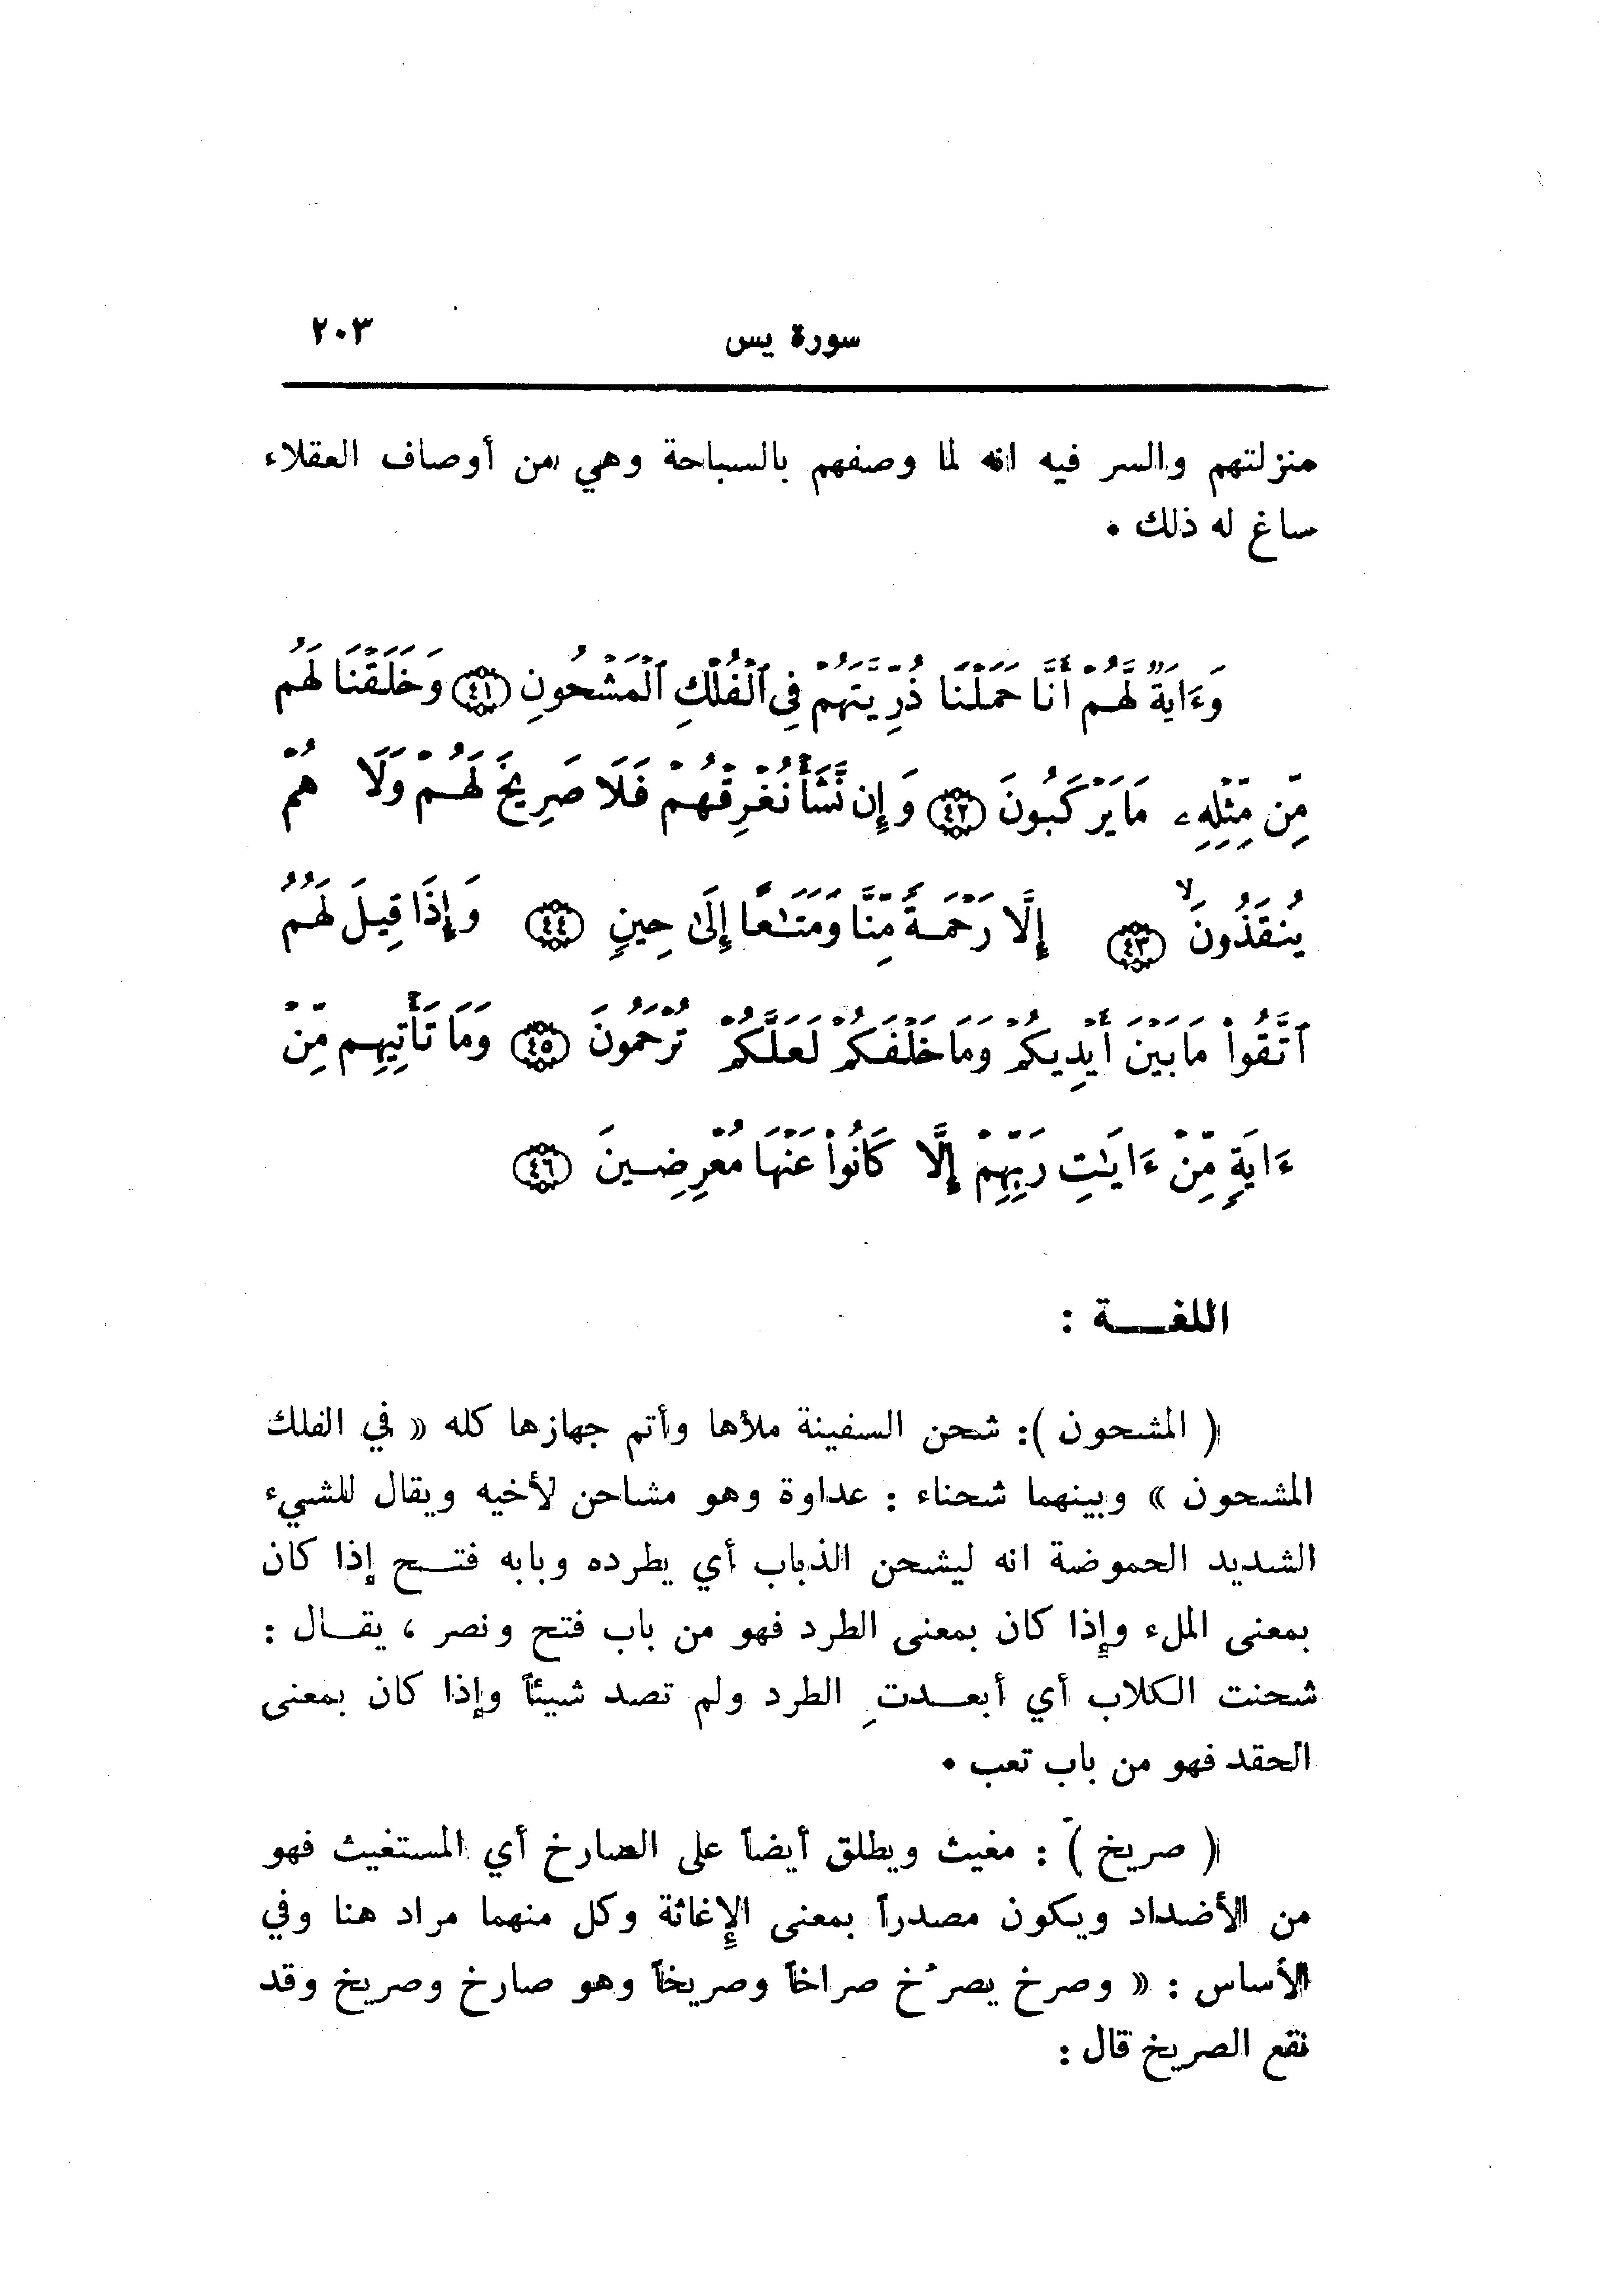 سورة يس ٢٠٣
منزلتهم والسر فيه انه لما وصفهم بالسباحة وهي من أوصاف العقلاء
ساغ له ذلك .
وَءَايَةٌ لَّهُمْ أَنَّا حَمَلْنَا ذُرِّيَّتَهُمْ فِى ٱلْفُلْكِ ٱلْمَشْحُونِ ٤١ وَخَلَقْنَا لَهُم
مِّن مِّثْلِهِۦ مَا يَرْكَبُونَ ٤٢ وَإِن نَّشَأْ نُغْرِقْهُمْ فَلَا صَرِيخَ لَهُمْ وَلَا هُمْ
يُنقَذُونَ ٤٣ إِلَّا رَحْمَةً مِّنَّا وَمَتَٰعًا إِلَىٰ حِينٍ ٤٤ وَإِذَا قِيلَ لَهُمُ
ٱتَّقُوا۟ مَا بَيْنَ أَيْدِيكُمْ وَمَا خَلْفَكُمْ لَعَلَّكُمْ تُرْحَمُونَ ٤٥ وَمَا تَأْتِيهِم مِّنْ
ءَايَةٍ مِّنْ ءَايَٰتِ رَبِّهِمْ إِلَّا كَانُوا۟ عَنْهَا مُعْرِضِينَ ٤٦
اللغـــة :
( المشحون ): شحن السفينة ملأها وأتم جهازها كله « في الفلك
المشحون » وبينهما شحناء : عداوة وهو مشاحن لأخيه ويقال للشيء
الشديد الحموضة انه ليشحن الذباب أي يطرده وبابه فتـــح إذا كان
بمعنى الملء وإذا كان بمعنى الطرد فهو من باب فتح ونصر ، يقـــال :
شحنت الكلاب أي أبعـــدتِ الطرد ولم تصد شيئاً وإذا كان بمعنى
الحقد فهو من باب تعب .
( صريخ ) : مغيث ويطلق أيضاً على الصارخ أي المستغيث فهو
من الأضداد ويكون مصدراً بمعنى الإغاثة وكل منهما مراد هنا وفي
الأساس : « وصرخ يصرُخ صراخاً وصريخاً وهو صارخ وصريخ وقد
نقع الصريخ قال :